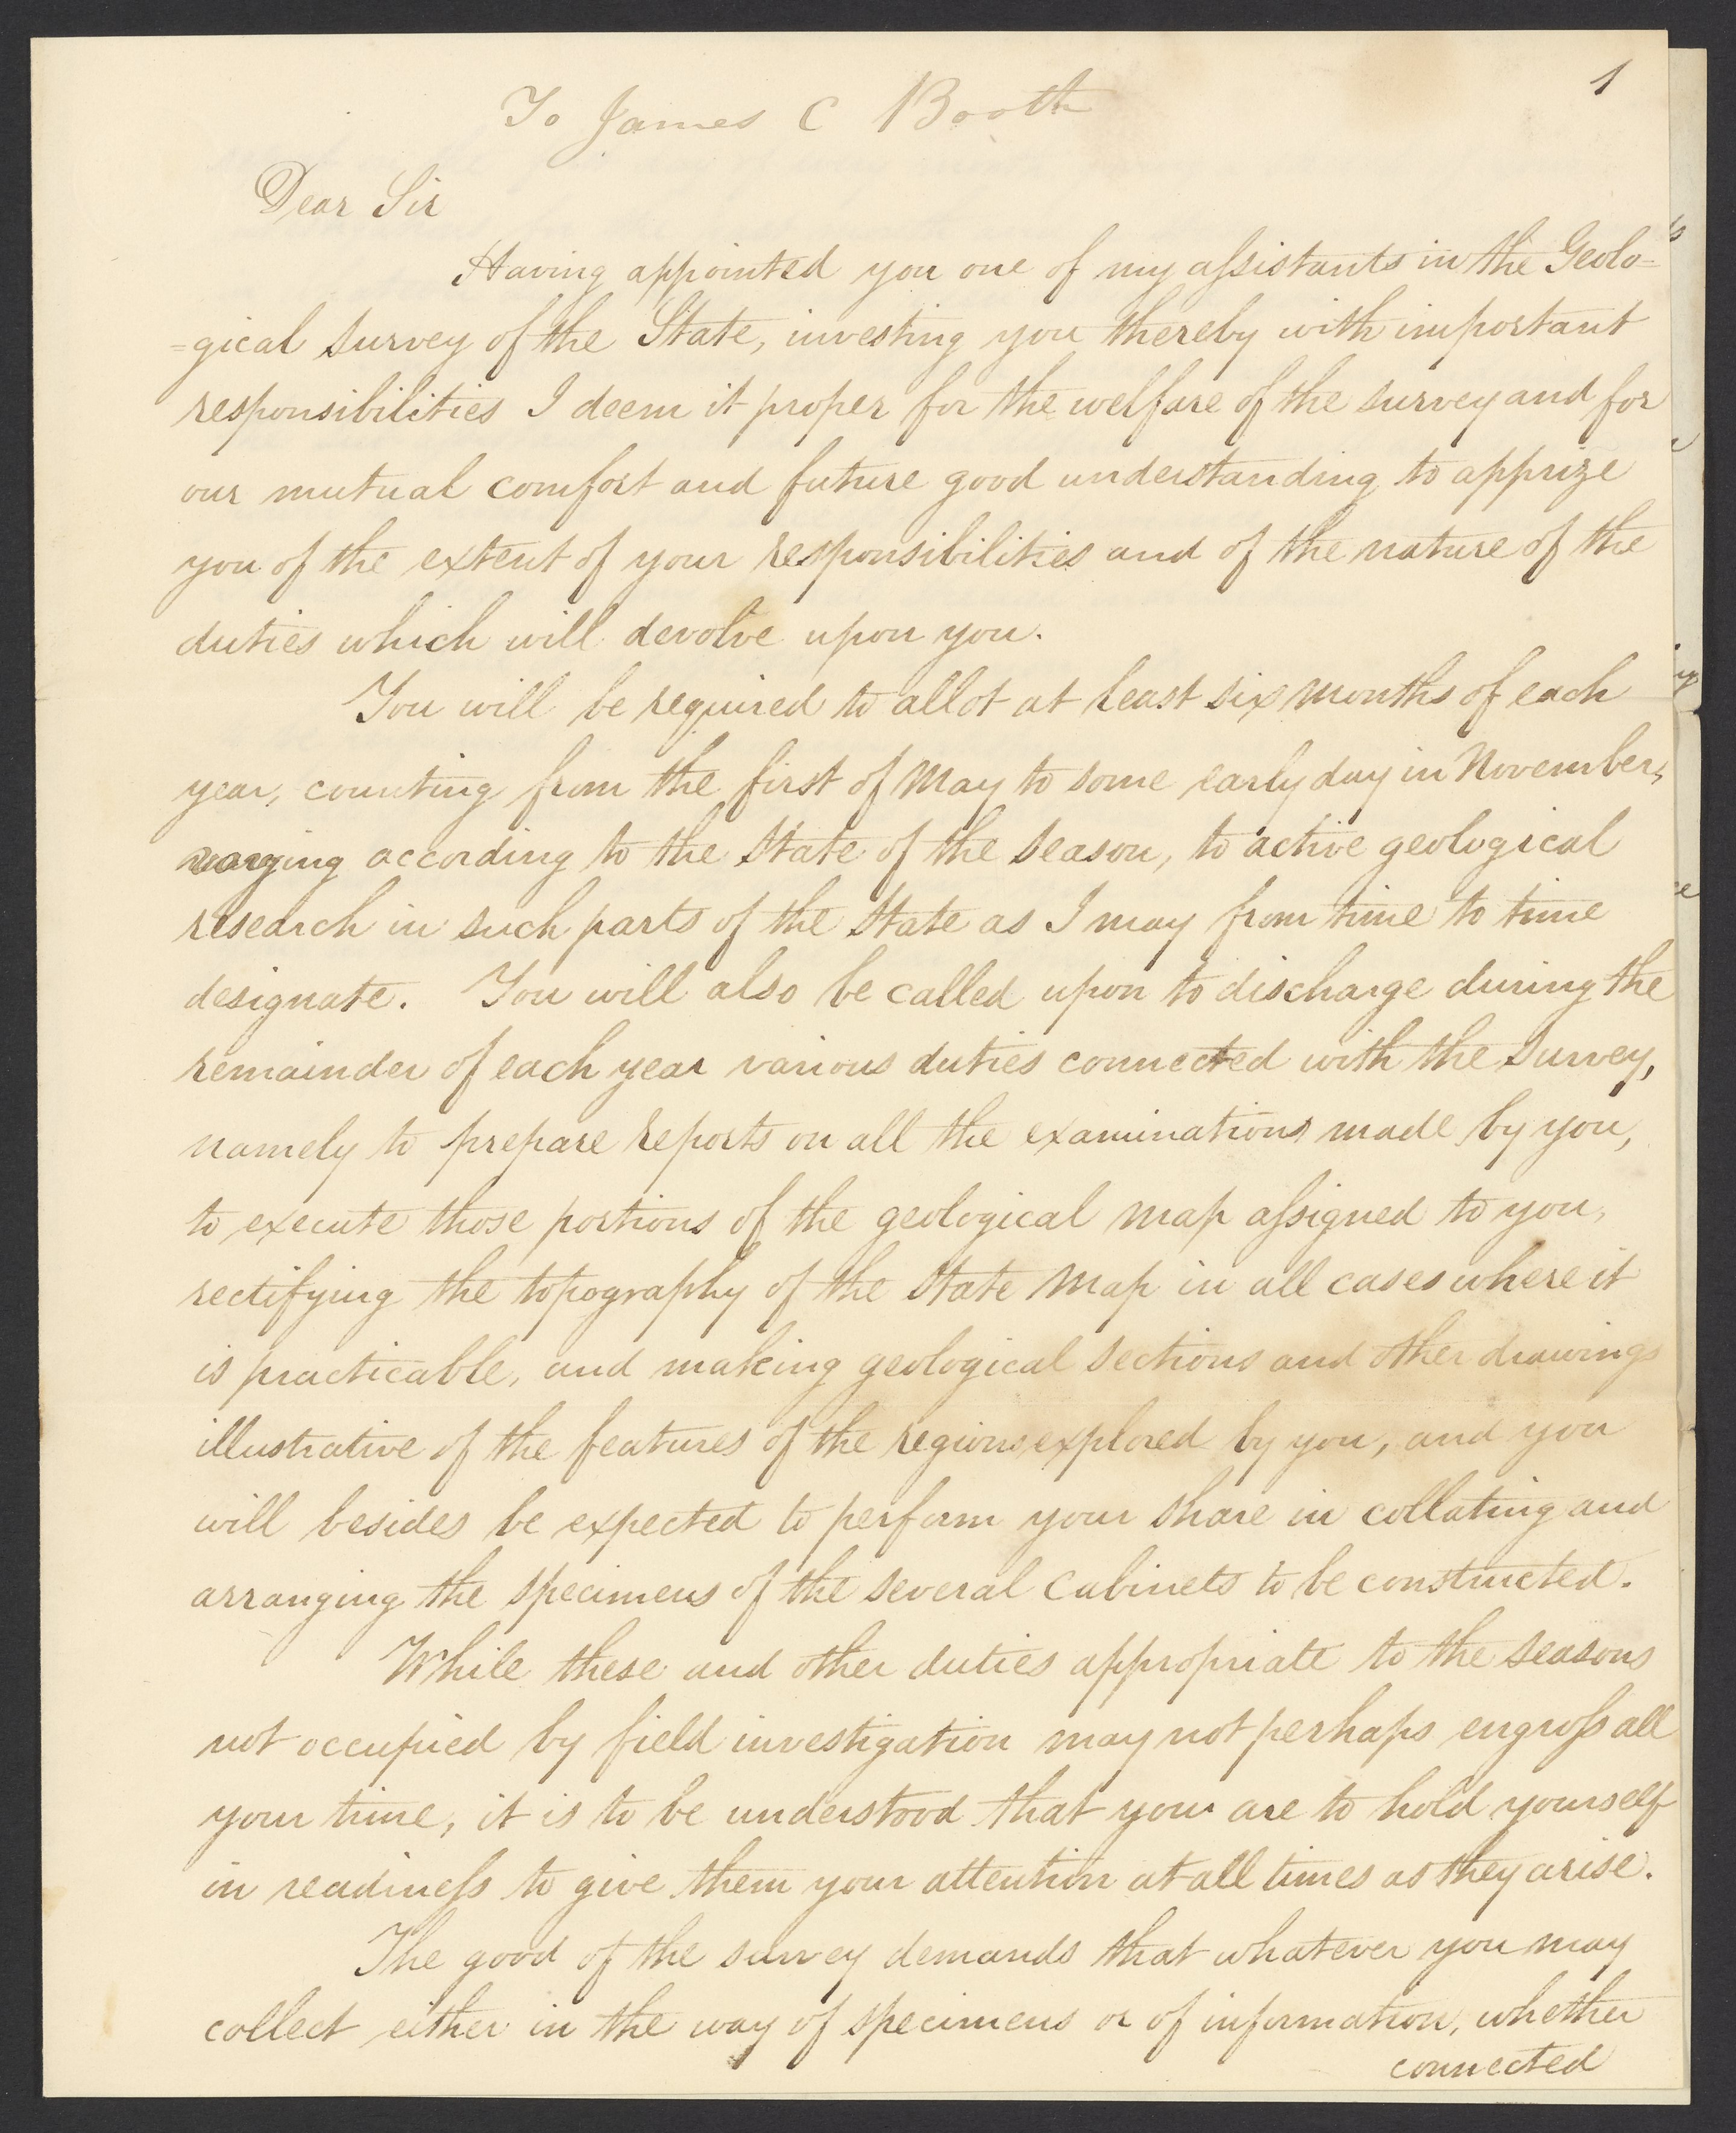 1
To James C Booth
Dear Sir
Having appointed you one of my aſsistants in the Geolo=
=gical survey of the State, investing you thereby with important
responsibilities I deem it proper for the welfare of the survey and for
our mutual comfort and future good understanding to apprize
you of the extent of your responsibilities and of the nature of the
duties which will devolve upon you.
You will be required to allot at least six months of each
year, counting from the first of May to some early day in November,
varying according to the State of the season, to active geological
research in such parts of the State as I may from time to time
designate. You will also be called upon to discharge during the
remainder of each year various duties connected with the Survey,
namely to prepare reports on all the examinations made by you,
to execute those portions of the geological map aſsigned to you,
rectifying the topography of the State Map in all cases where it
is practicable, and making geological sections and other drawings
illustrative of the features of the regions explored by you, and you
will besides be expected to perform your share in collating and
arranging the specimens of the several Cabinets to be constructed.
While these and other duties appropriate to the seasons
not occupied by field investigation may not perhaps engroſs all
your time, it is to be understood that your are to hold yourself
in readineſs to give them your attention at all times as they arise.
The good of the survey demands that whatever you may
collect either in the way of specimens or of information, whether
connected